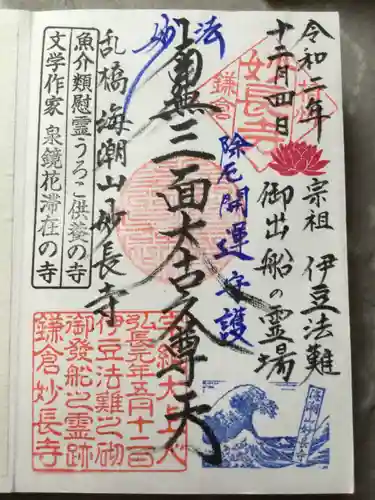 令和二年
十二月四日
相州
鎌倉
妙長寺
宗祖 伊豆法難
御出船の霊場
妙法
除厄開運守護
南無三面大吉尊天
乱橋 海潮山妙長寺
魚介類慰霊うろこ供養の寺
文学作家 泉鏡花滞在の寺
日蓮大上人
弘長元年五月十二日
伊豆法難之砌
御發船之霊跡
鎌倉妙長寺
海潮山妙長寺